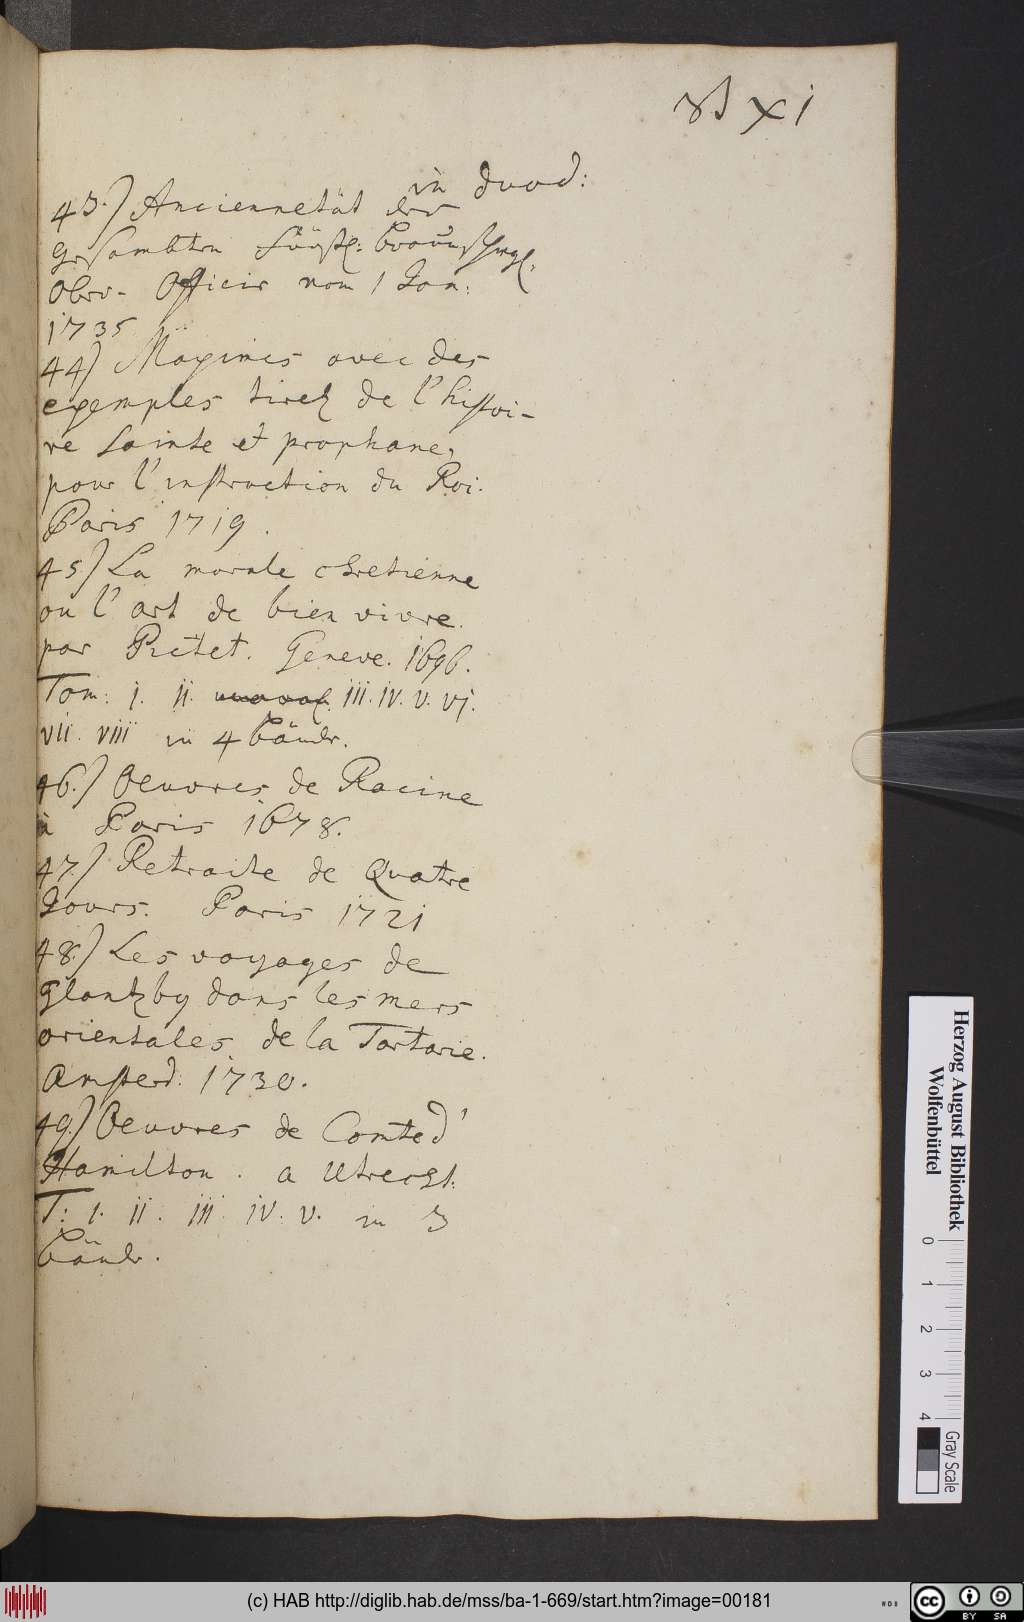 XI
in duod:
43.) Anciennetät der
gesambten Fürstl: Braunschwgl:
Ober- Officir vom 1 Jan:
1735
44) Maximes avec des
exemples tirez de l'histoi-
re sainte et prophane,
pour l'instruction du Roi.
Paris 1719.
45) La morale chretienne
ou l'art de bien vivre.
par Pictet. Geneve. 1696.
Tom: I. II. III. IV. V. VI.
VII. VIII in 4 Bände.
46.) Oeuvres de Racine
à Paris 1678.
47.) Retraite de Quatre
Jours. Paris 1721
48.) Les voyages de
Glantzby dans les mers
orientales de la Tartarie.
Amsterd: 1730.
49.) Oeuvres de Comte d'
Hamilton. a Utrecht.
T: I. II. III. IV. V. in 3
Bände.
Herzog August Bibliothek
Wolfenbüttel
0 1 2 3 4
Gray Scale
(c) HAB http://diglib.hab.de/mss/ba-1-669/start.htm?image=00181
WDB
CC BY SA